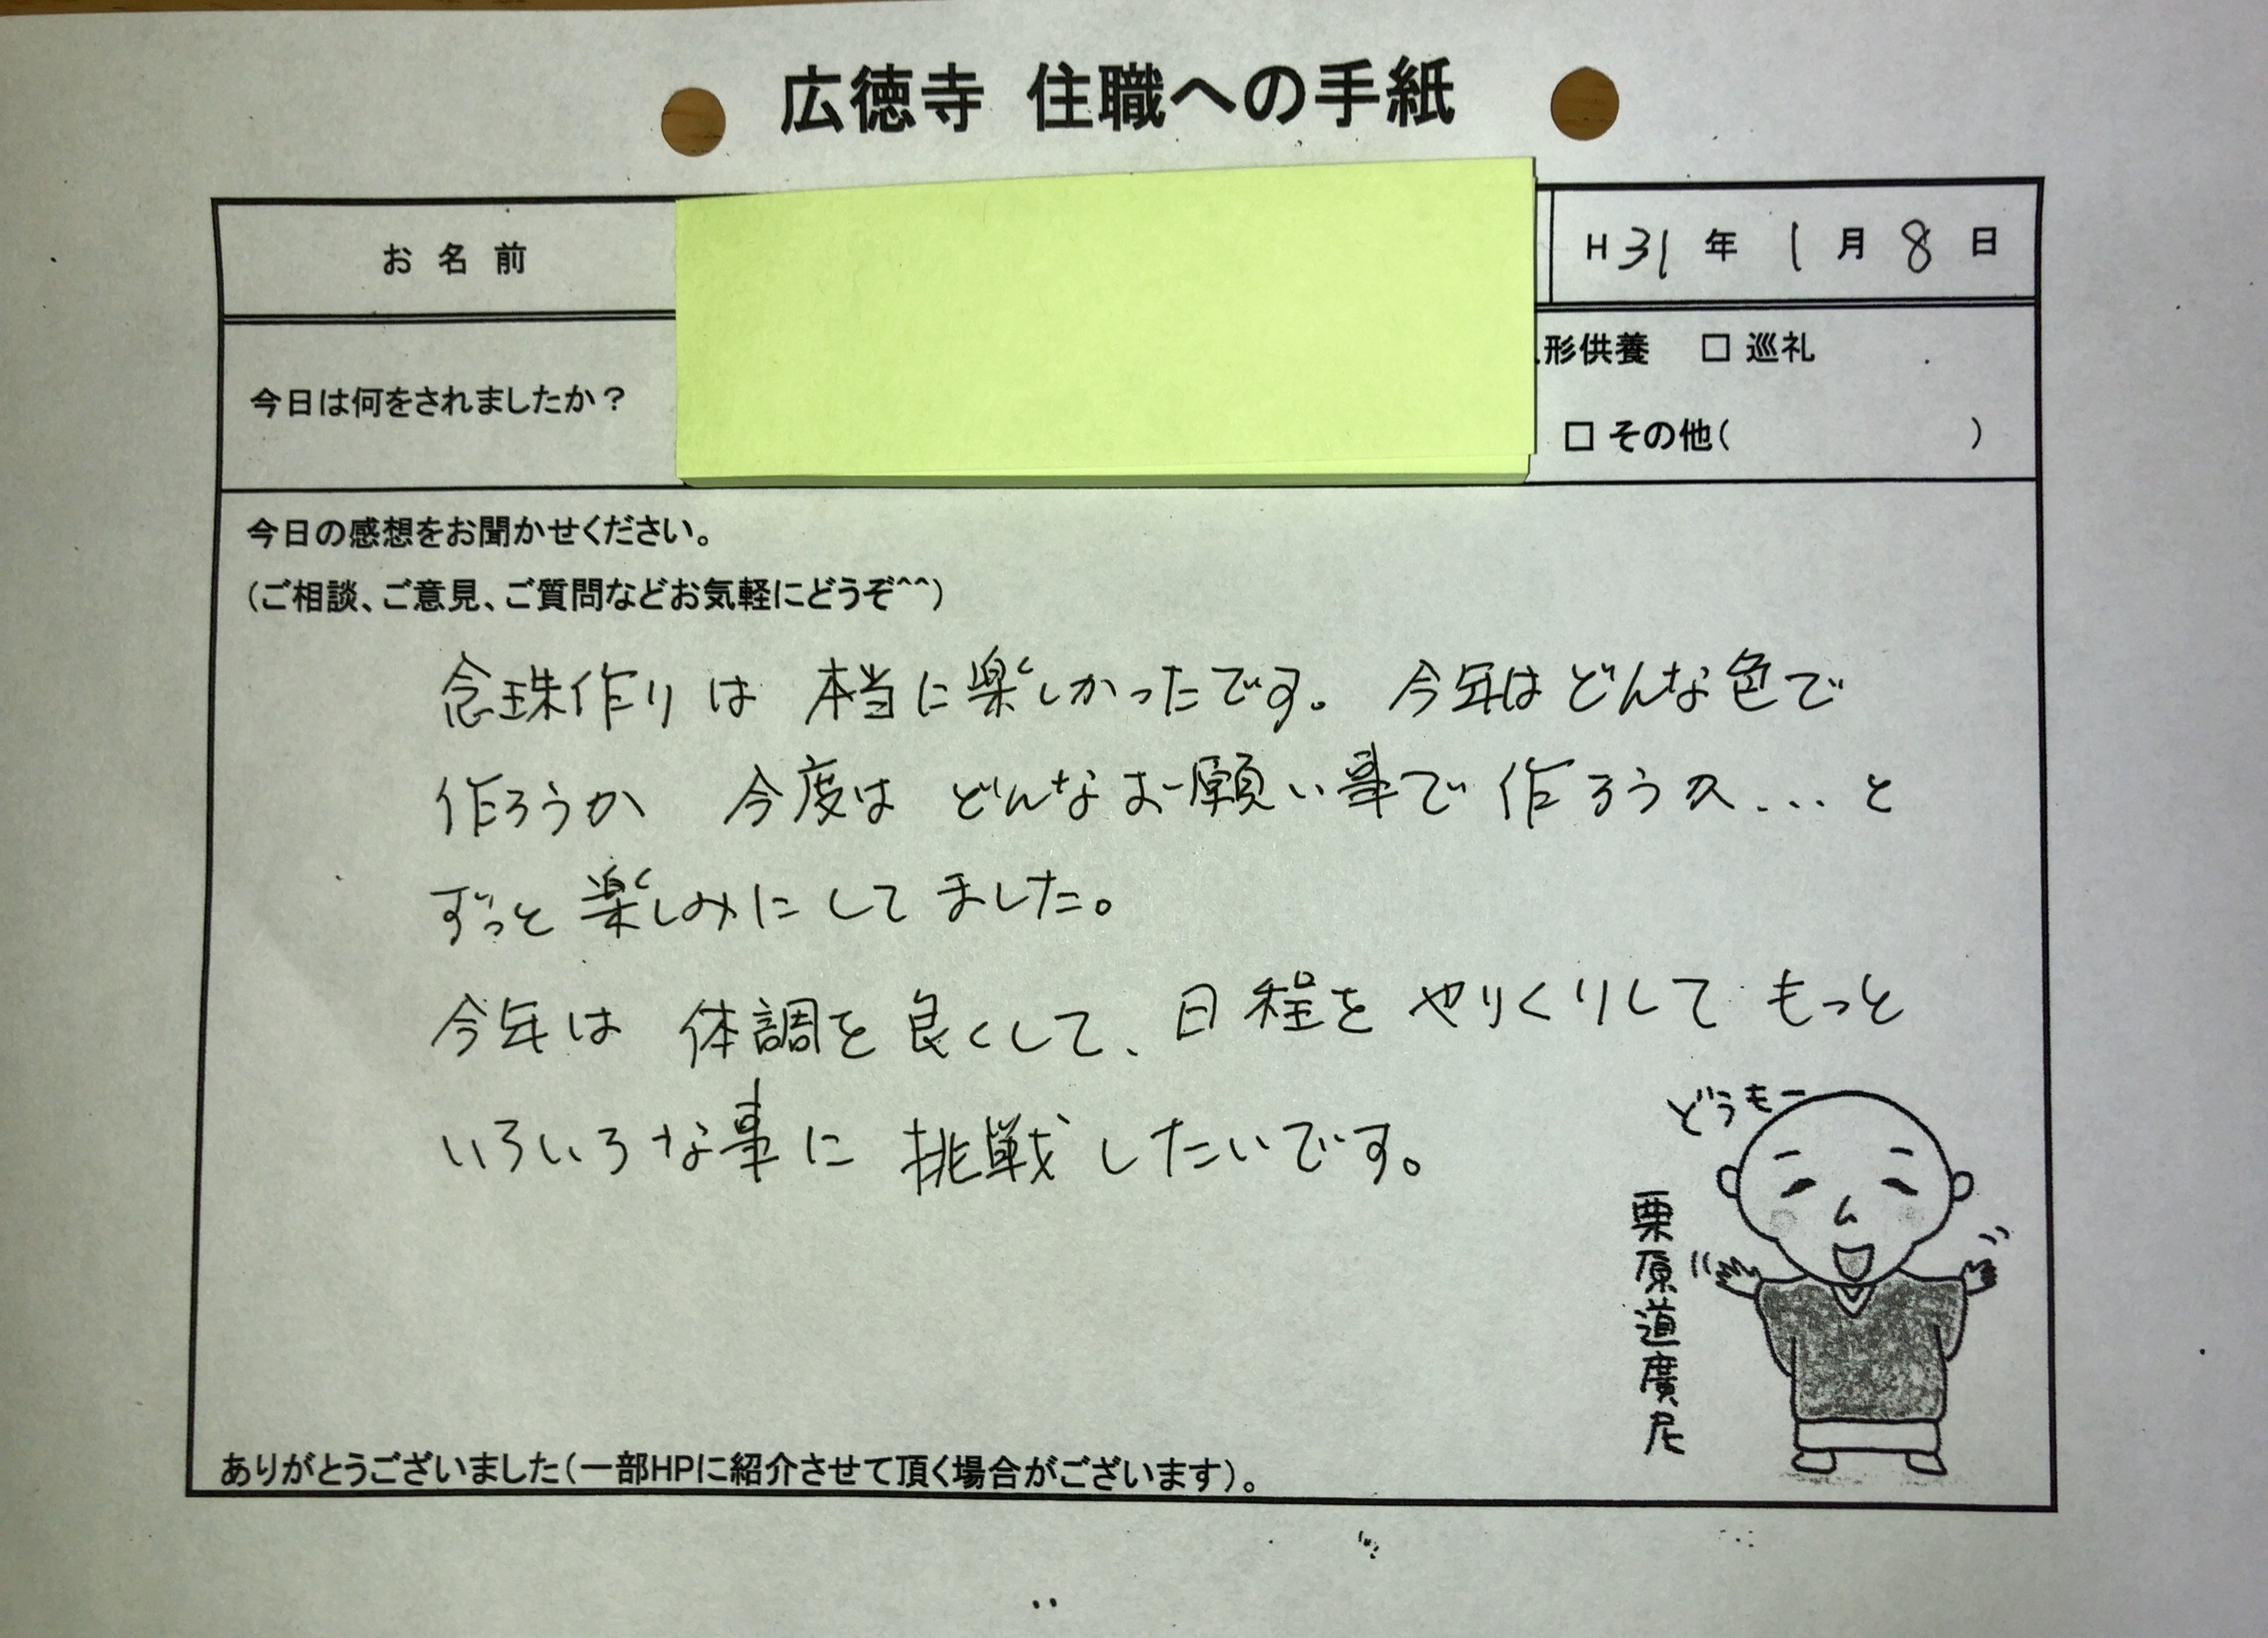 広徳寺 住職への手紙
お名前
H31年1月8日
今日は何をされましたか？
形供養 □ 巡礼
□ その他( )
今日の感想をお聞かせください。
(ご相談、ご意見、ご質問などお気軽にどうぞ^^)
念珠作りは 本当に楽しかったです。今年はどんな色で
作ろうか 今度は どんなお願い事で 作ろうか...と
ずっと楽しみにしてました。
今年は 体調を良くして、日程をやりくりして もっと
いろいろな事に 挑戦したいです。
どうもー
栗原道廣尼
ありがとうございました(一部HPに紹介させて頂く場合がございます)。